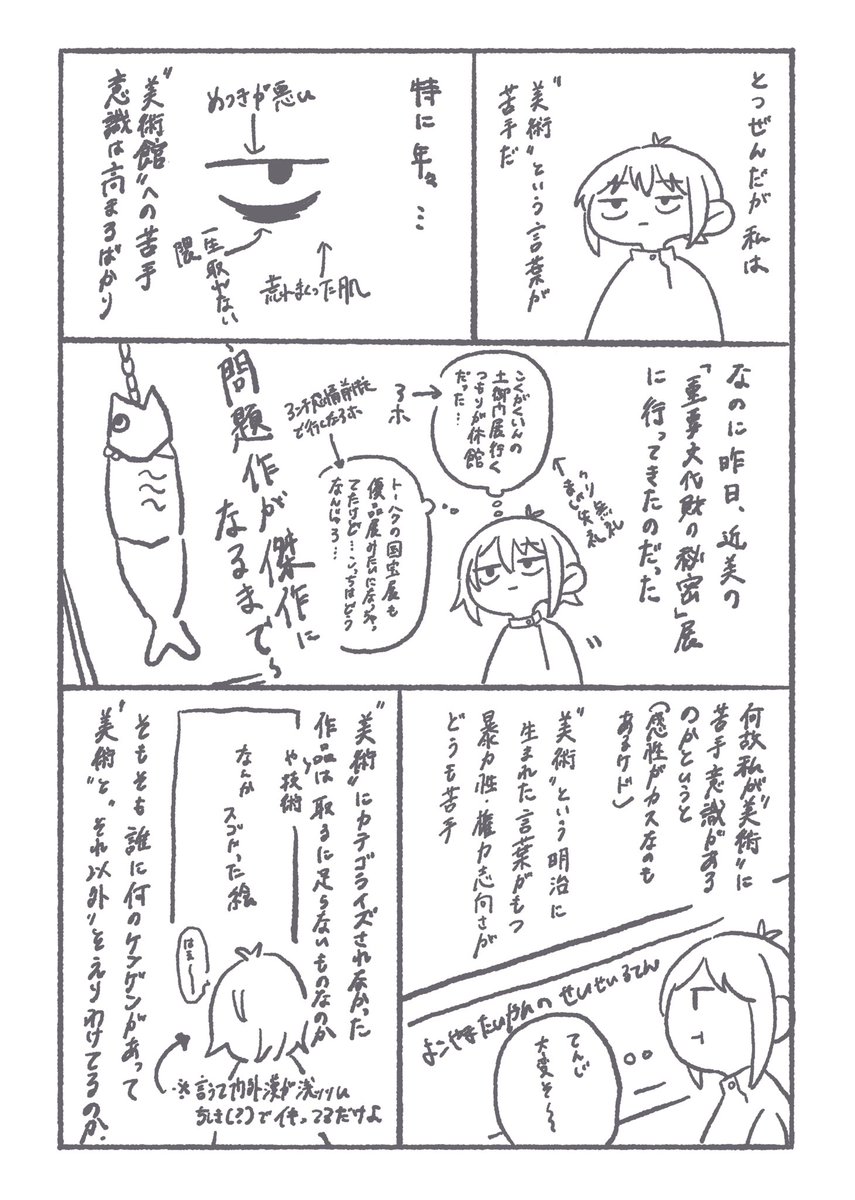 とつぜんだが私は
"美術"という言葉が
苦手だ
特に年々…
めつきが悪い
一生取れない
隈
荒れまくった肌
"美術館"への苦手
意識は高まるばかり
なのに昨日、近美の
「重要文化財の秘密」展
に行ってきたのだった
こくがくいんの
土御門展行く
つもりが休館
だった…
アホ
トーハクの国宝展も
優品展みたいになっ
てたけど…こっちはどう
なんじゃろ…
問題作が傑作に
なるまで〜
何故私が"美術"に
苦手意識がある
のかというと
(感性がカスなのも
あるケド)
"美術"という明治に
生まれた言葉がもつ
暴力性・権力志向さが
どうも苦手
よこやまたいかんの せいせいるてん
てんじ
大変そ〜〜
"美術"にカテゴライズされなかった
作品は取るに足らないものなのか
や技術
なんか
スゴかった絵
はえ〜
そもそも誰に何のケンゲンがあって
"美術"と"それ以外"をえりわけてるのか.
※言うて内外漢が浅いい
ちしき(?)でイキってるだけよ